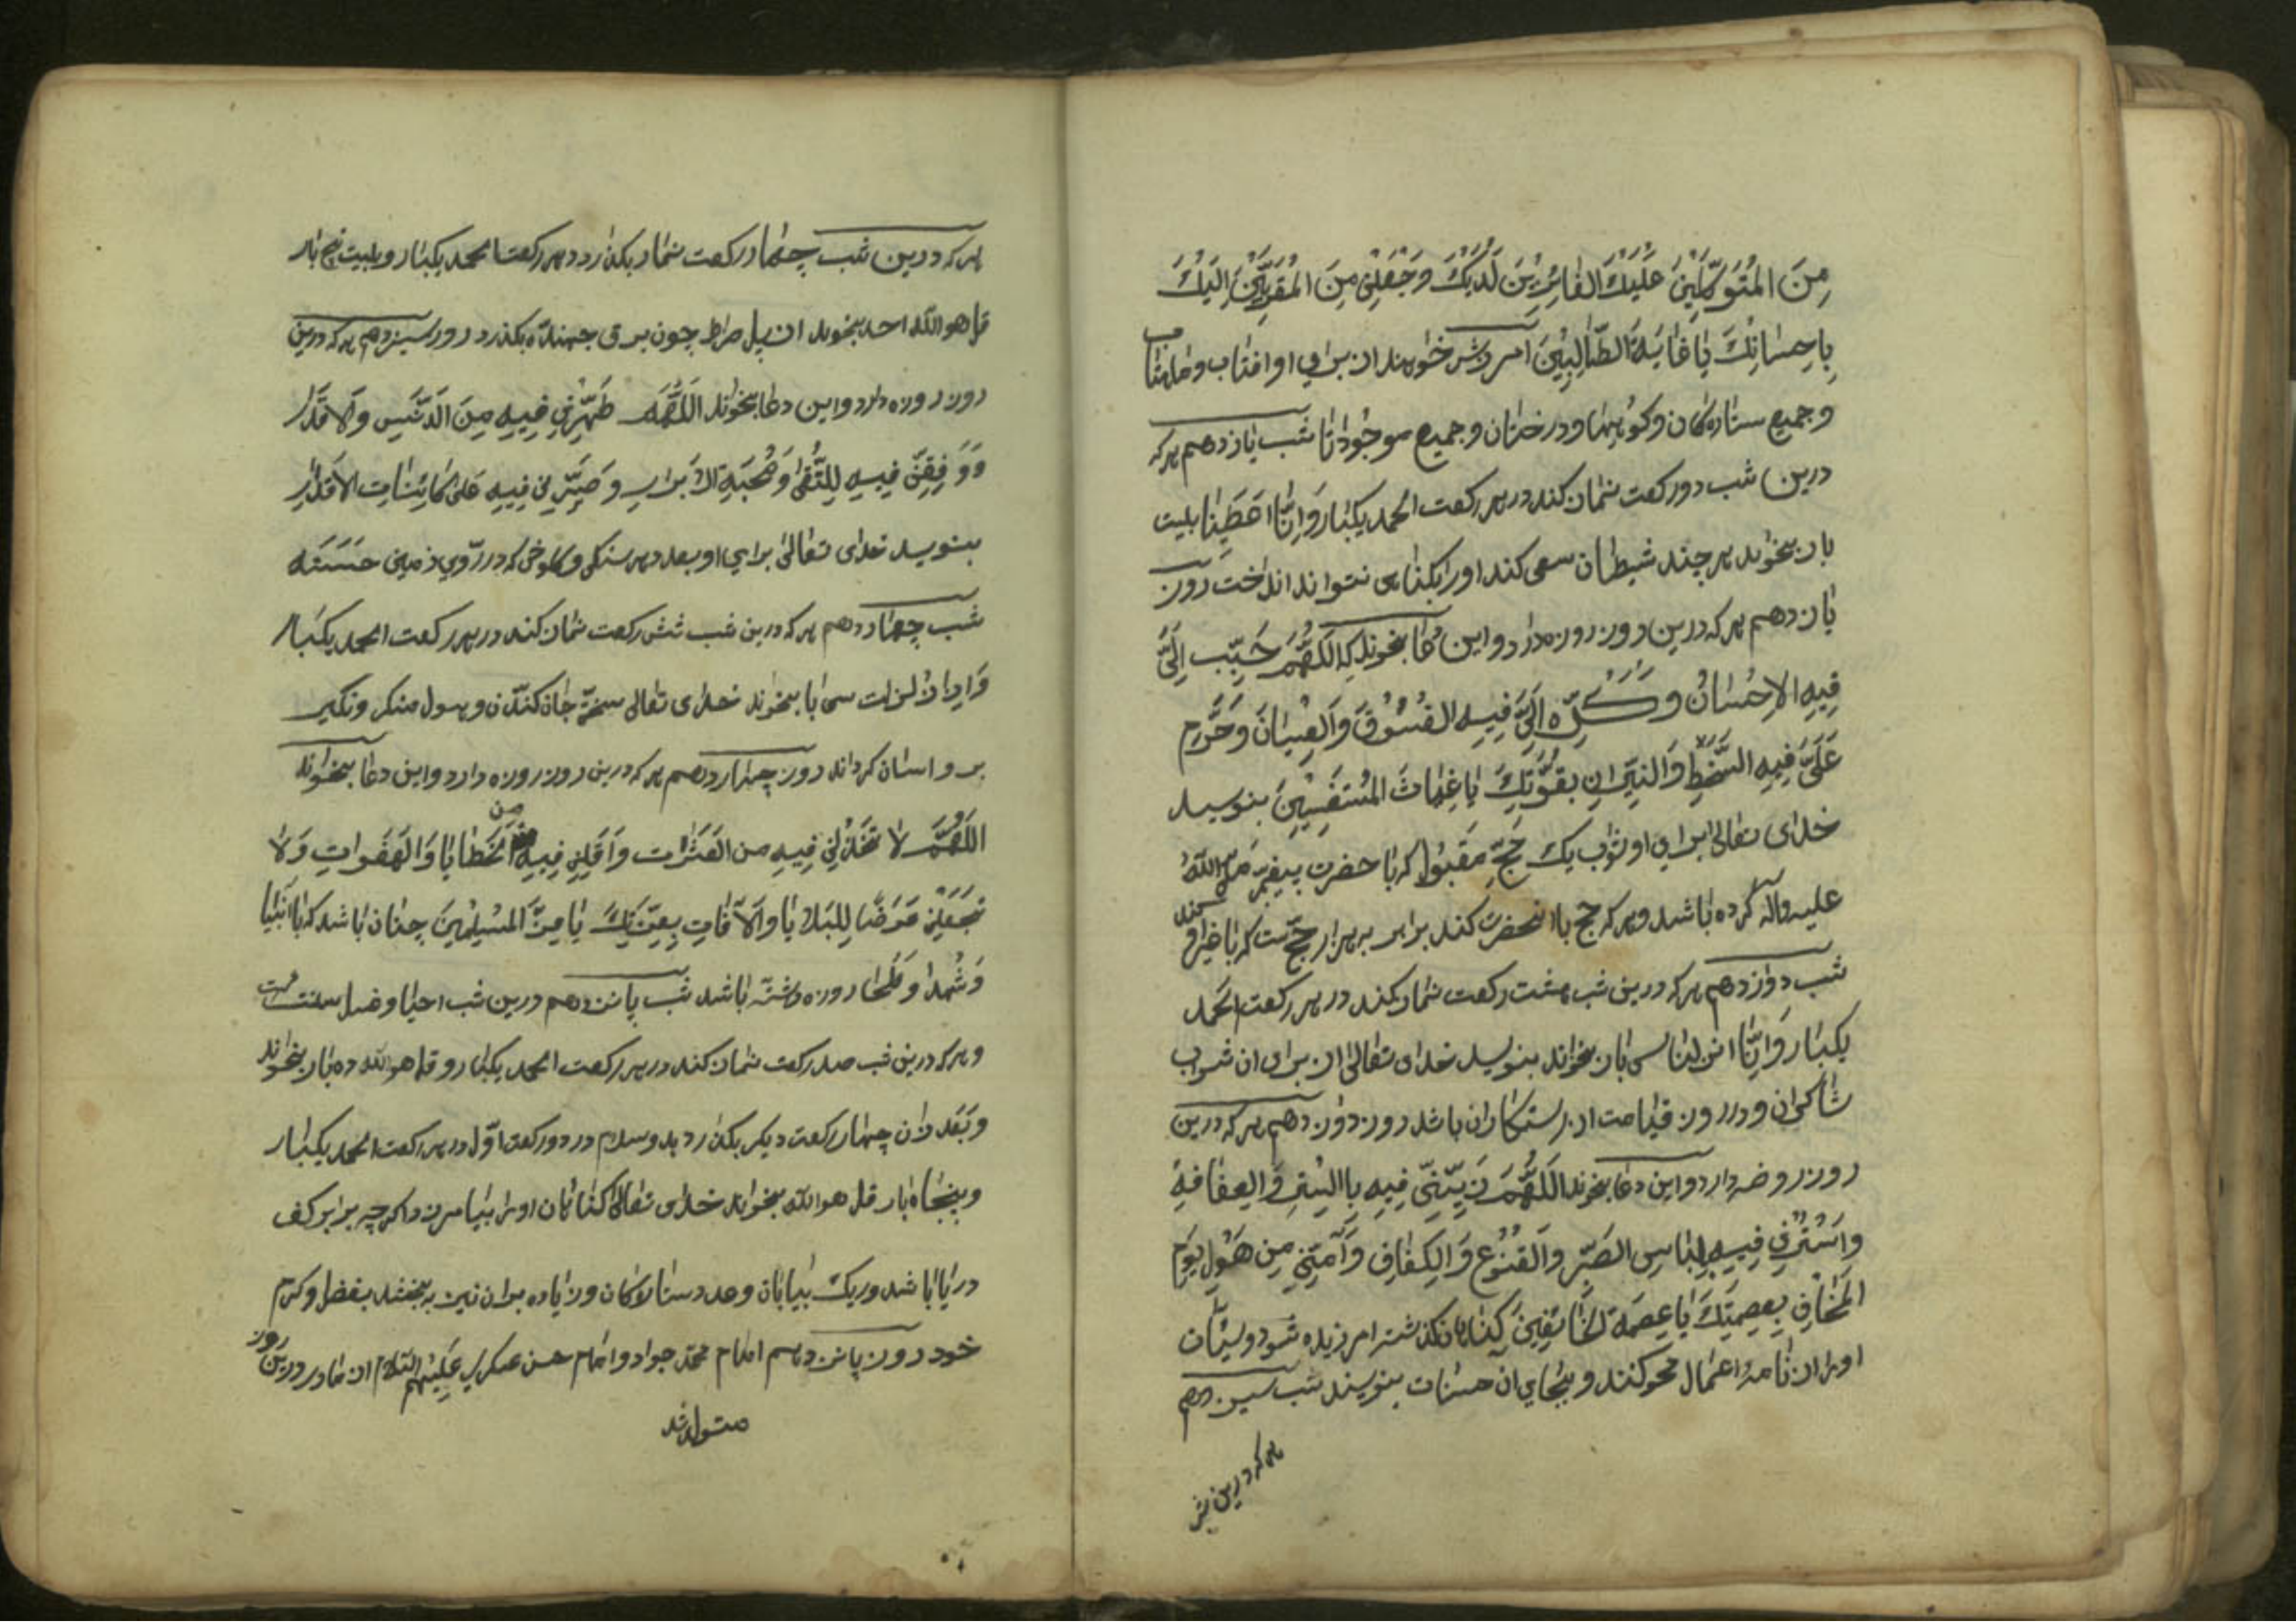 مِنَ المُتَوَكِّلِينَ عَلَيْكَ الفٰائِزِينَ لَدَيْكَ وَجْعَلْنِی مِنَ المُقَرَّبِینَ اِلَیْكَ
بِاِحسٰانِكَ يٰا غٰايَةَ الطّٰالِبِيْنَ امرزش خواهند از براي او افتاب و ماهتاب
و جميع ستارەكان و كوهها و درختان و جميع موجودات شب يازدهم هر كه
درين شب دو ركعت نماز كند در هر ركعت الحمد يكبار وَاِنّٰا اعطَينٰا بيست
بار بخواند هر چند شيطان سعى كند او را بكناهى نتواند انداخت روز
يازدهم هر كه درين روز روزه دارد و اين دعا بخواند كه اَللّهُمَّ حَبِّب اِلَىَّ
فِيهِ الاِحْسٰانُ وَ كَرِّه اِلَىَّ فِيهِ الفُسُوْقَ وَالعِسْيٰانَ وَحَرِّم
عَلَىَّ فِيهِ السَّخَطِ وَالنِّيرٰانِ بِقُوَّتِكَ يٰا غِيٰاثَ المُسْتَغِيْثِينَ بنويسد
خداى تعالى براى او ثواب يك حَجِّ مَقبُول كه با حضرت پيغمبر صلى اللهُ
عليه واله كرده باشد و هر كه حج با انحضرت كند برابر به هزار حجّست كه با غير او كند
شب دوازدهم هر كه درين شب هشت ركعت نماز بكند در هر ركعت الحمد
يكبار وَاِنّٰا انزلنا سى بار بخواند بنويسد خداى تعالى از براى ان ثواب
شاكران و در روز قيامت از رستكاران باشد روز دوازدهم هر كه درين
روز روضه دارد و اين دعا بخواند اَللّهُمَّ زَيِّنّى فِيهِ بِاالسِّترِ وَالعِفٰافِ
وَاسْتُرْنِى فِيهِ لِبٰاسِ الصَبّرِ وَالقنُوْعِ وَالكَفٰافِ وَآمِنِّى مِن هَوْلِ يَوْمِ
المَخٰافِ بِعِصمَتِكَ يٰا عِصمَةَ الخٰائِفِينَ كناهان كذشته امرزيده شود و سيئات
او را از نامۀ اعمال محو كنند و بجاي ان حسنات بنويسند شب سيزدهم
هر كه درين شب
هر كه درين شب چهار ركعت نماز بكذارد در هر ركعت الحمد يكبار و بيست پنج بار
قل هو الله احد بخواند از پل صراط چون برق جهنده بكذرد روز سيزدهم هر كه درين
روز روزه دارد و اين دعا بخواند اَللّهُمَّ طَهِّرْنِي فِيهِ مِنَ الَدّنَسِ وَالاَقذٰار
وَوَفِقنّى فِيهِ لِلتُّقىٰ وَصُحْبَةِ الاَبرٰارِ وَصَبِّرنِى فِيهِ عَلىٰ كائِنٰاتِ الاَقدٰار
بنويسد خداى تعالىٰ براي او بعدد هر سنكى و كلوخى كه در روي زمين حَسَنَه
شب چهاردهم هر كه درين شب شش ركعت نماز كند در هر ركعت الحمد يكبار
وَاِذا زُلزِلت سى بار بخواند خداى تعالى سختى جان كندن و هول منكر و نكير
بر و اسان كرداند روز چهاردهم هر كه درين روز روزه دارد و اين دعا بخواند
اَللّهُمَّ لا تَخذُلنِى فِيهِ من العَثَرٰات وَاَقِلنِى فِيهِ من الخَطٰايٰا وَالهَفَواتِ وَلاٰ
تَجعَلنِى غَرَضًا لِلبَلاٰيٰا وَالآفٰاتِ بِعِزّتِكَ يٰا عِزَّ المُسْلِمِينَ چنان باشد كه با انبيا
وَشُهدا وَصُلَحٰا روزه داشته باشد شب پانزدهم درين شب احيا و غسل سنت است
و هر كه درين شب صد ركعت نماز كند در هر ركعت الحمد يكبار و قل هو الله ده بار بخواند
و بَعَد از ان چهار ركعت ديكر بكذارد بدو سلام در دو ركعت اوّل در هر ركعت الحمد يكبار
و پنجاه بار قل هو الله بخواند خداى تعالى كناهان او را بيامرزد اكرچه برابر كف
دريا باشد و ريك بيابان و عدد ستارەكان و زياده بران نيز به بخشد بفضل و كرم
خود روز پانزدهم امام محمّد جواد و امام حسن عسكري عَلَيْهِمُ السَّلام از مادر درين روز
متولد شد